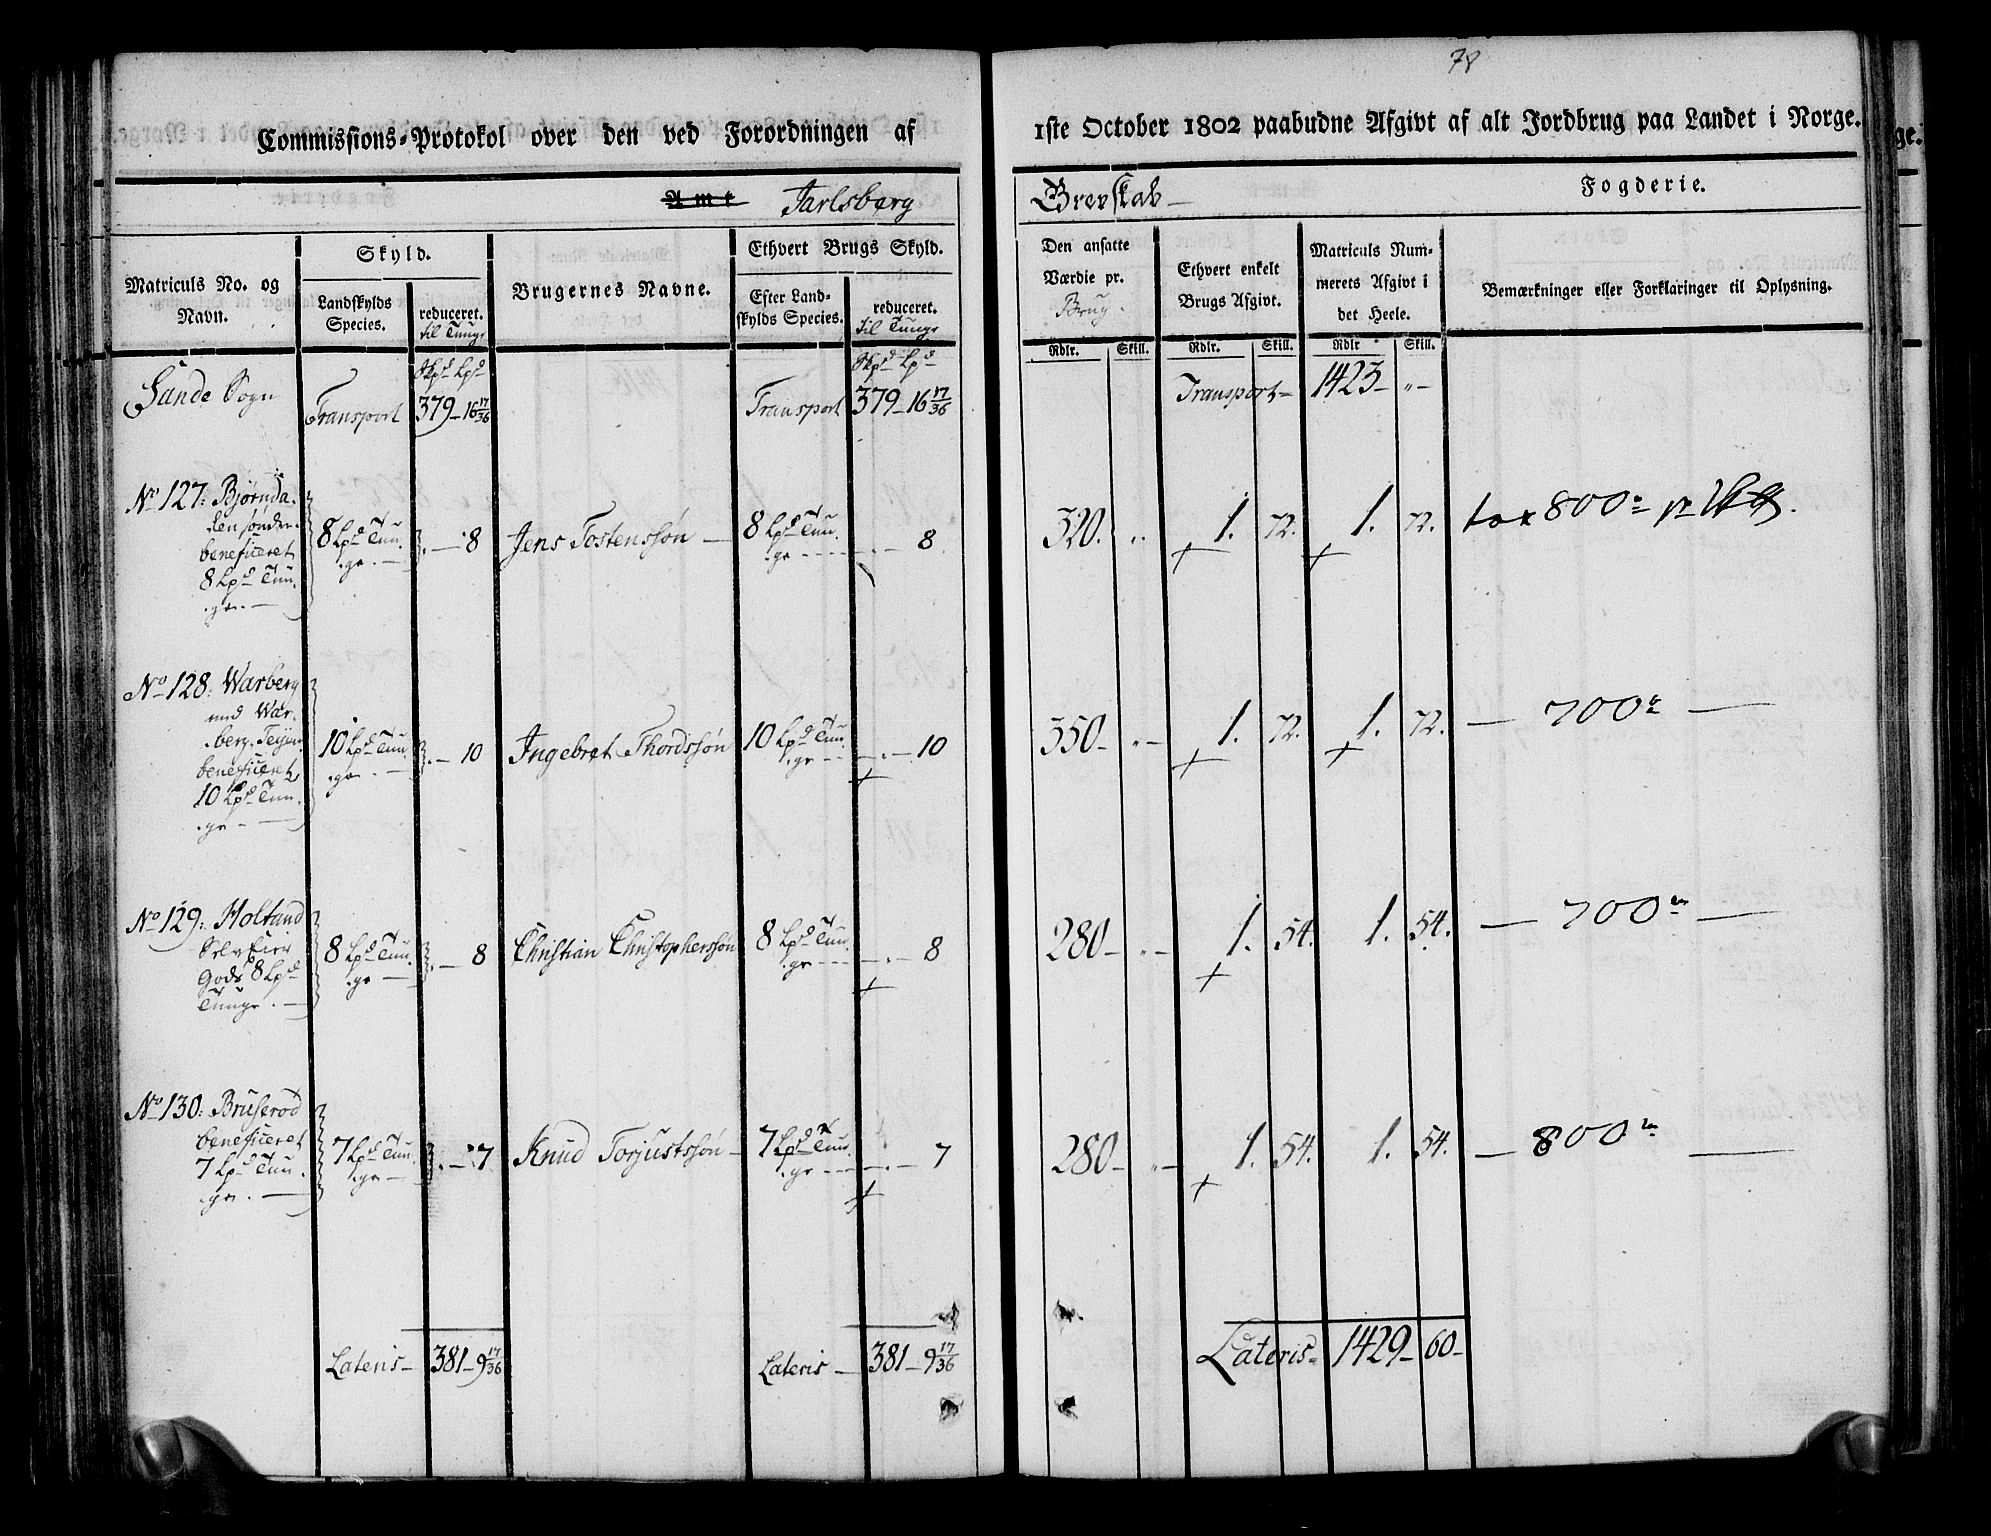 78
Commissions-Protokol over den ved Forordningen af 1ste October 1802 paabudne Afgivt af alt Jordbrug paa Landet i Norge.
Amt Jarlsberg Grevskab Fogderie.
Matriculs No. og Navn.
Skyld.
Landskylds Species.
reduceret. til Tunge
Brugernes Navne.
Ethvert Brugs Skyld.
Efter Landskylds Species.
reduceret. til Tunge
Den ansatte Værdie pr. Brug.
Ethvert enkelt Brugs Afgivt.
Matriculs Nummerets Afgivt i det Heele.
Bemærkninger eller Forklaringer til Oplysning.
Skpd Lpd Skpd Lpd Rdlr. Skill. Rdlr. Skill. Rdlr Skill.
Sande Sogn Transport 379 – 16 17/36 Transport 379 – 16 17/36 Transport – 1423 – „ –
No 127: Bjørnda-
len sønder-
beneficeret
8 Lpd Tun-
ge. –
8 Lpd Tun-
ge. – . – 8 Jens Tostenssøn – 8 Lpd Tun-
ge - - - . – 8 320. „ 1. 72. 1. 72. tax 800
No 128: Warberg
med War-
berg-Teyen
beneficeret
10 Lpd Tun-
ge – 10 Lpd Tun-
ge . – . – 10 Ingebret Thordssøn 10 Lpd Tun-
ge - - . – 10 350 – „ – 1. 72. 1. 72. — 700 —
No 129: Holtand
Selveier
Gods 8 Lpd
Tunge . – 8 Lpd Tun-
ge – . – 8 Christian Christophersøn 8 Lpd Tun-
ge - - - . – 8 280 – „ – 1. 54. 1. 54. — 700 —
No 130: Bruserød
beneficeret
7 Lpd Tun-
ge . – 7 Lpd Tun-
ge – . – 7 Knud Torjustssøn – 7 Lpd Tun-
ge - - - . – 7 280 – „ – 1. 54. 1. 54. — 800 —
Lateris – 381 – 9 17/36 Lateris – 381 – 9 17/36 Lateris 1429 – 60 –